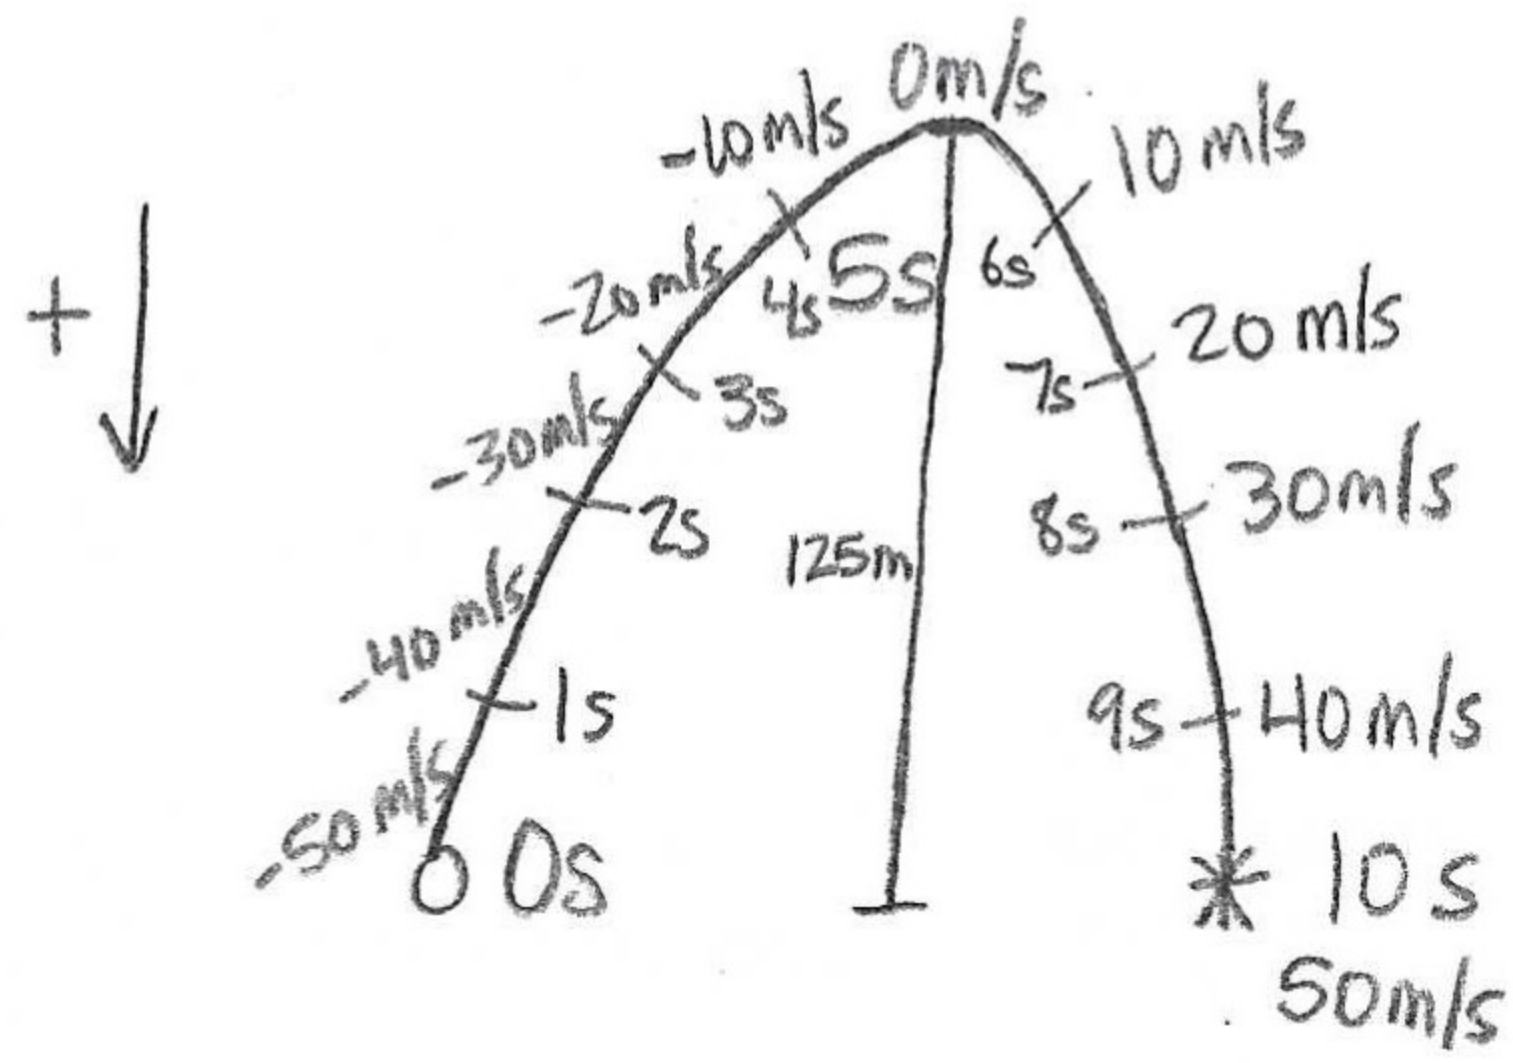 0m/s
-10m/s
10 m/s
-20m/s
4s
5s
6s
+
20 m/s
-30m/s
3s
7s
30m/s
2s
8s
125m
-40m/s
1s
9s
40m/s
-50m/s
0s
10s
50m/s